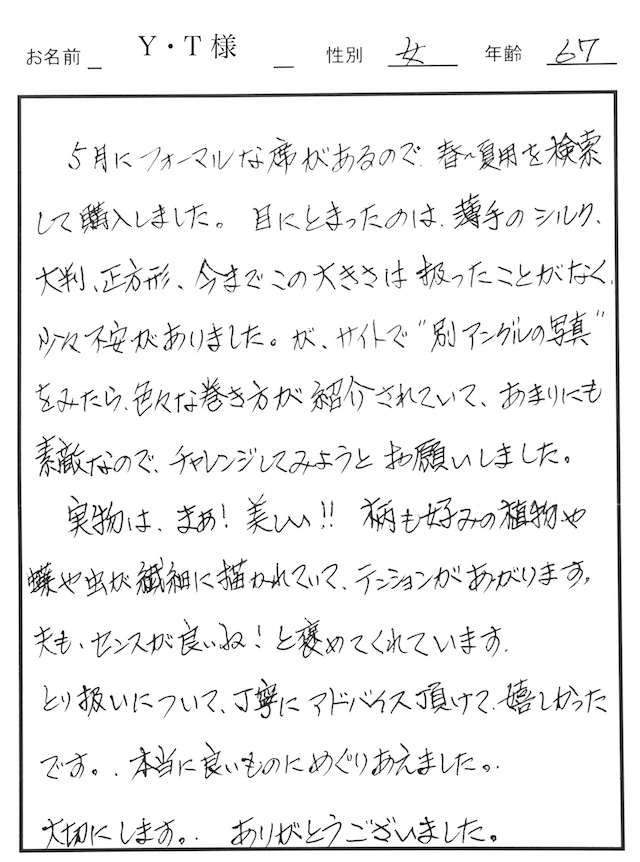 お名前 Y・T様 性別 女 年齢 67
5月にフォーマルな席があるので、春〜夏用を検索
して購入しました。目にとまったのは、薄手のシルク、
大判、正方形、今までこの大きさは扱ったことがなく、
少々不安がありました。が、サイトで"別アングルの写真"
をみたら、色々な巻き方が紹介されていて、あまりにも
素敵なので、チャレンジしてみようとお願いしました。
実物は、まぁ!美しい!!柄も好みの植物や
蝶や虫が繊細に描かれていて、テンションがあがります。
夫も、センスが良いね!と褒めてくれています。
とり扱いについて、丁寧にアドバイス頂けて、嬉しかった
です。、本当に良いものにめぐりあえました。
大切にします。、ありがとうございました。